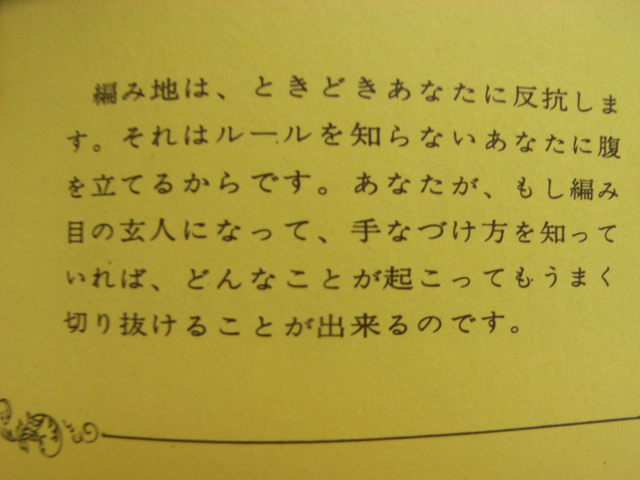 編み地は、ときどきあなたに反抗しま
す。それはルールを知らないあなたに腹
を立てるからです。あなたが、もし編み
目の玄人になって、手なづけ方を知って
いれば、どんなことが起こってもうまく
切り抜けることが出来るのです。